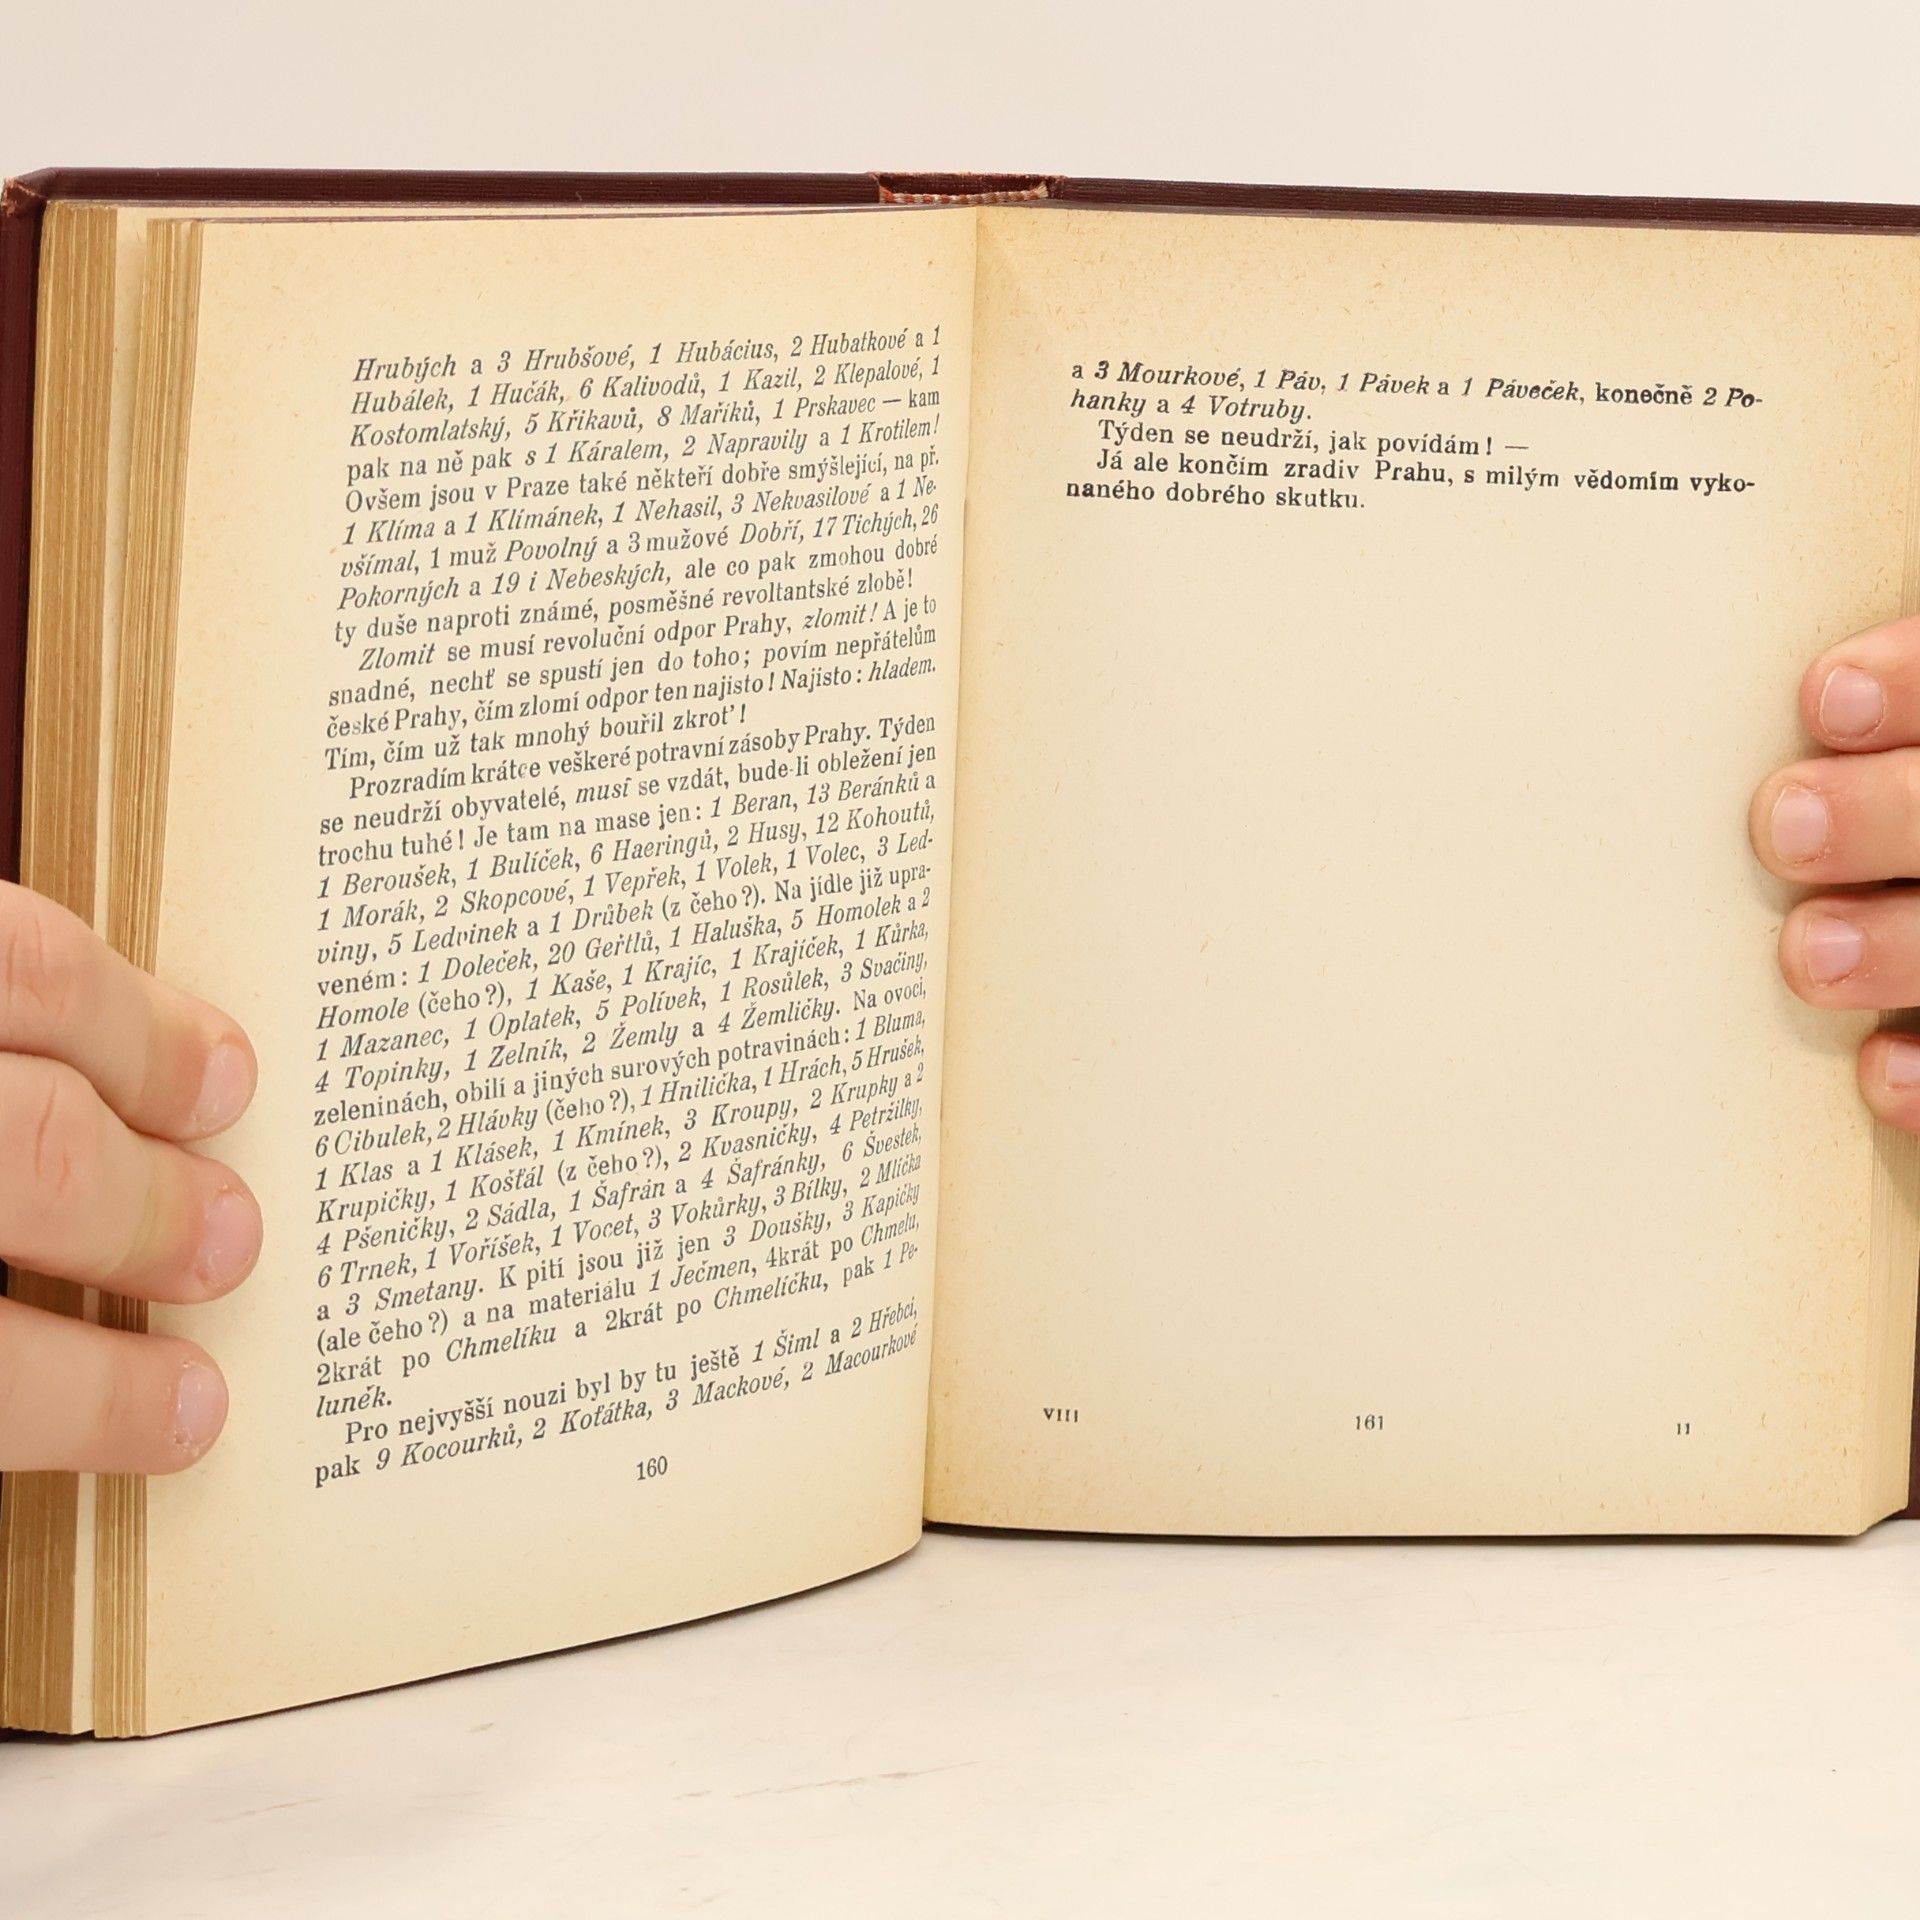 Hrubých a 3 Hrubšové, 1 Hubácius, 2 Hubatkové a 1
Hubálek, 1 Hučák, 6 Kalivodů, 1 Kazil, 2 Klepalové, 1
Kostomlatský, 5 Křikavů, 8 Maříků, 1 Prskavec — kam
pak na ně pak s 1 Káralem, 2 Napravily a 1 Krotilem!
Ovšem jsou v Praze také někteří dobře smýšlející, na př.
1 Klíma a 1 Klímánek, 1 Nehasil, 3 Nekvasilové a 1 Ne-
všímal, 1 muž Povolný a 3 mužové Dobří, 17 Tichých, 26
Pokorných a 19 i Nebeských, ale co pak zmohou dobré
ty duše naproti známé, posměšné revoltantské zlobě!
Zlomit se musí revoluční odpor Prahy, zlomit! A je to
snadné, nechť se spustí jen do toho; povím nepřátelům
české Prahy, čím zlomí odpor ten najisto! Najisto: hladem.
Tím, čím už tak mnohý bouřil zkrotʼ!
Prozradím krátce veškeré potravní zásoby Prahy. Týden
se neudrží obyvatelé, musí se vzdát, bude-li obležení jen
trochu tuhé! Je tam na mase jen: 1 Beran, 13 Beránků a
1 Beroušek, 1 Bulíček, 6 Haeringů, 2 Husy, 12 Kohoutů,
1 Morák, 2 Skopcové, 1 Vepřek, 1 Volek, 1 Volec, 3 Led-
viny, 5 Ledvinek a 1 Drůbek (z čeho?). Na jídle již upra-
veném: 1 Doleček, 20 Geřtlů, 1 Haluška, 5 Homolek a 2
Homole (čeho?), 1 Kaše, 1 Krajíc, 1 Krajíček, 1 Kůrka,
1 Mazanec, 1 Oplatek, 5 Polívek, 1 Rosůlek, 3 Svačiny,
4 Topinky, 1 Zelník, 2 Žemly a 4 Žemličky. Na ovoci,
zeleninách, obilí a jiných surových potravinách: 1 Bluma,
6 Cibulek, 2 Hlávky (čeho?), 1 Hnilička, 1 Hrách, 5 Hrušek,
1 Klas a 1 Klásek, 1 Kmínek, 3 Kroupy, 2 Krupky a 2
Krupičky, 1 Košťál (z čeho?), 2 Kvasničky, 4 Petržilky,
4 Pšeničky, 2 Sádla, 1 Šafrán a 4 Šafránky, 6 Švestek,
6 Trnek, 1 Voříšek, 1 Vocet, 3 Vokůrky, 3 Bílky, 2 Mlíčka
a 3 Smetany. K pití jsou již jen 3 Doušky, 3 Kapičky
(ale čeho?) a na materiálu 1 Ječmen, 4krát po Chmelu,
2krát po Chmelíku a 2krát po Chmelíčku, pak 1 Pe-
luněk.
Pro nejvyšší nouzi byl by tu ještě 1 Šiml a 2 Hřebci,
pak 9 Kocourků, 2 Koťátka, 3 Mackové, 2 Macourkové
160
a 3 Mourkové, 1 Páv, 1 Pávek a 1 Páveček, konečně 2 Po-
hanky a 4 Votruby.
Týden se neudrží, jak povídám! —
Já ale končím zradiv Prahu, s milým vědomím vyko-
naného dobrého skutku.
VIII 161 11